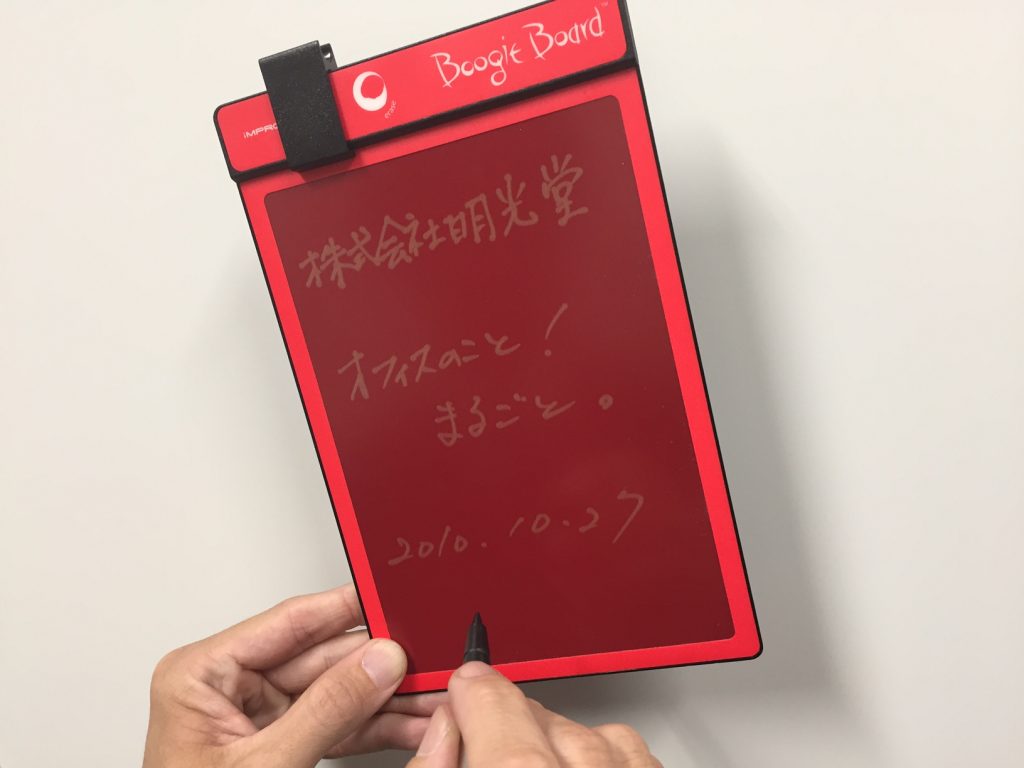 Boogie Board™
erase
株式会社明光堂
オフィスのこと!
まるごと。
2010.10.27